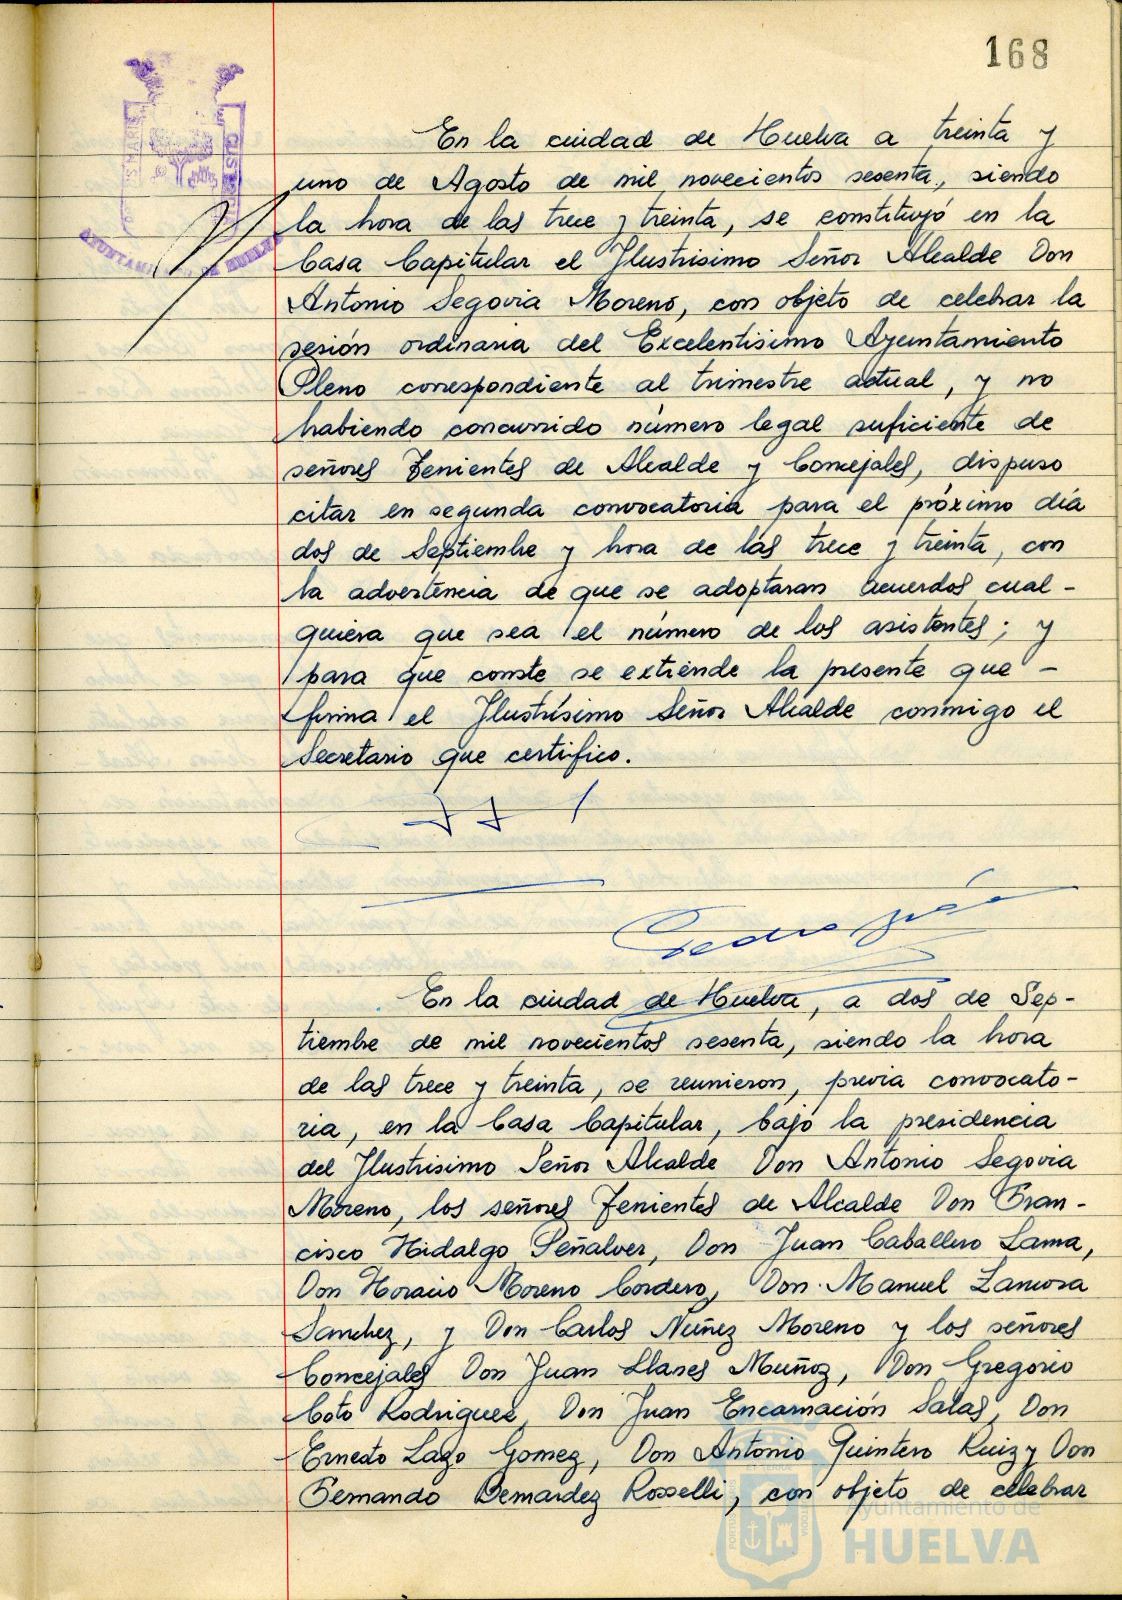 168
En la ciudad de Huelva a treinta y
uno de Agosto de mil novecientos sesenta, siendo
la hora de las trece y treinta, se constituyó en la
Casa Capitular el Ilustrisimo Señor Alcalde Don
Antonio Segovia Moreno, con objeto de celebrar la
sesión ordinaria del Excelentisimo Ayuntamiento
Pleno correspondiente al trimestre actual, y no
habiendo concurrido número legal suficiente de
señores Tenientes de Alcalde y Concejales, dispuso
citar en segunda convocatoria para el próximo día
dos de Septiembre y hora de las trece y treinta, con
la advertencia de que se adoptaran acuerdos cual-
quiera que sea el número de los asistentes; y
para que conste se extiende la presente que -
firma el Ilustrísimo Señor Alcalde conmigo el
Secretario que certifico.
En la ciudad de Huelva, a dos de Sep-
tiembre de mil novecientos sesenta, siendo la hora
de las trece y treinta, se reunieron, previa convocato-
ria, en la Casa Capitular, bajo la presidencia
del Ilustrisimo Señor Alcalde Don Antonio Segovia
Moreno, los señores Tenientes de Alcalde Don Fran-
cisco Hidalgo Peñalver, Don Juan Caballero Lama,
Don Horacio Moreno Cordero, Don Manuel Zamora
Sanchez, y Don Carlos Nuñez Moreno y los señores
Concejales Don Juan Llanes Muñoz, Don Gregorio
Coto Rodriguez, Don Juan Encarnación Salas, Don
Ernesto Lazo Gomez, Don Antonio Quintero Ruiz y Don
Fernando Bernardez Rosselli, con objeto de celebrar
AYUNTAMIENTO DE HUELVA
Ayuntamiento de
HUELVA